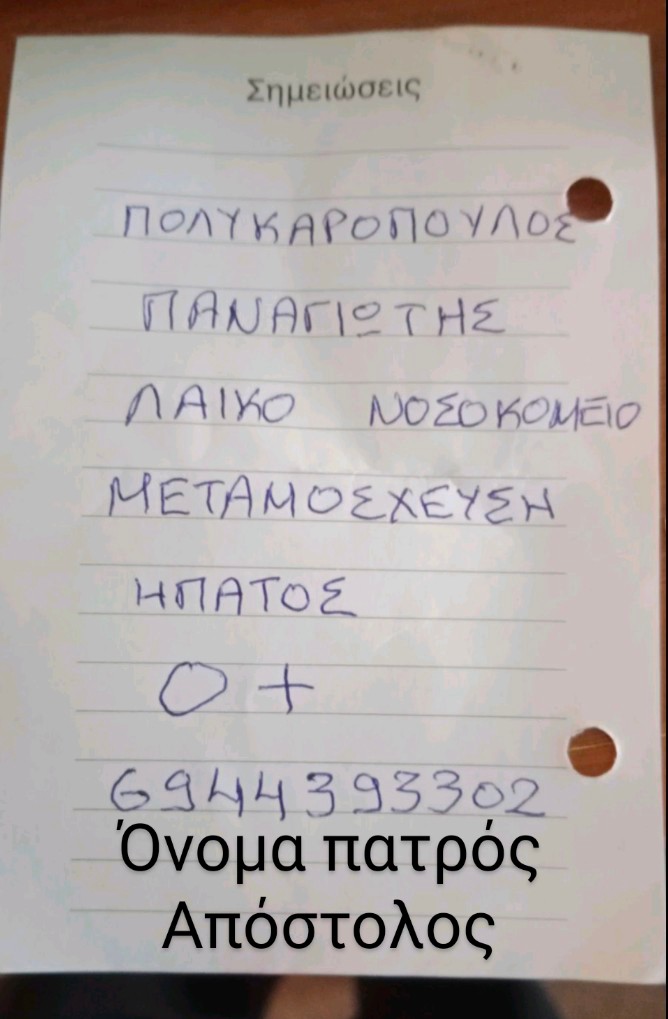 Σημειώσεις
ΠΟΛΥΚΑΡΟΠΟΥΛΟΣ
ΠΑΝΑΓΙΩΤΗΣ
ΛΑΙΚΟ ΝΟΣΟΚΟΜΕΙΟ
ΜΕΤΑΜΟΣΧΕΥΣΗ
ΗΠΑΤΟΣ
0 +
6944393302
Όνομα πατρός
Απόστολος